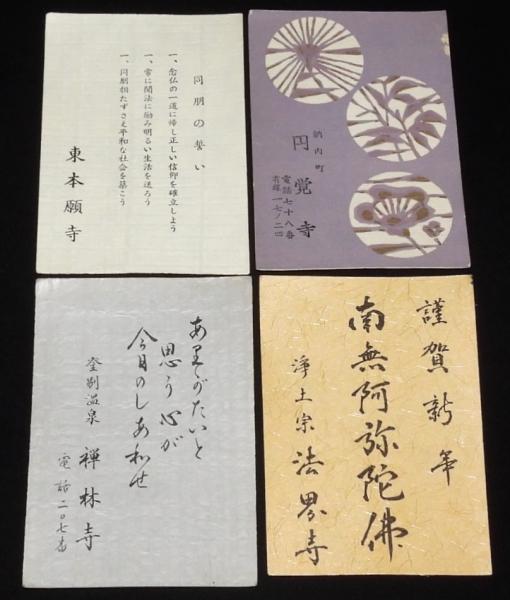 同朋の誓い
一、念仏の一道に帰し正しい信仰を確立しよう
一、常に聞法に励み明るい生活を送ろう
一、同朋相たずさえ平和な社会を築こう
東本願寺
納内町
円覚寺
電話七十八番
有線一七ノ二四
ありがたいと
思う心が
今日のしあわせ
登別温泉
禅林寺
電話二〇七番
謹賀新年
南無阿弥陀佛
浄土宗 法界寺